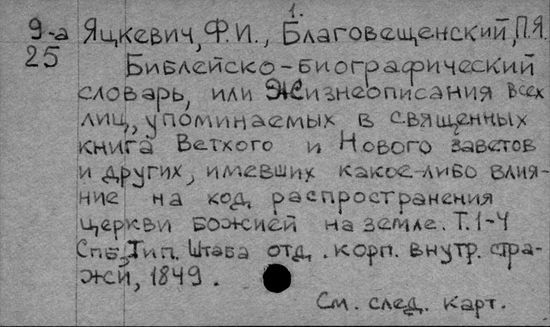 1.
9-а Яцкевич, Ф.И., Благовещенский, П.Я.
25 Библейско-биографический
словарь, или Жизнеописания всех
лиц, упоминаемых в священных
книга Ветхого и Нового заветов
и других, имевших какое-либо влия-
ние на код распространения
церкви божией на земле. Т.1-4
Спб, Тип. Штаба отд. корп. внутр. стра-
жи, 1849.
См. след. карт.